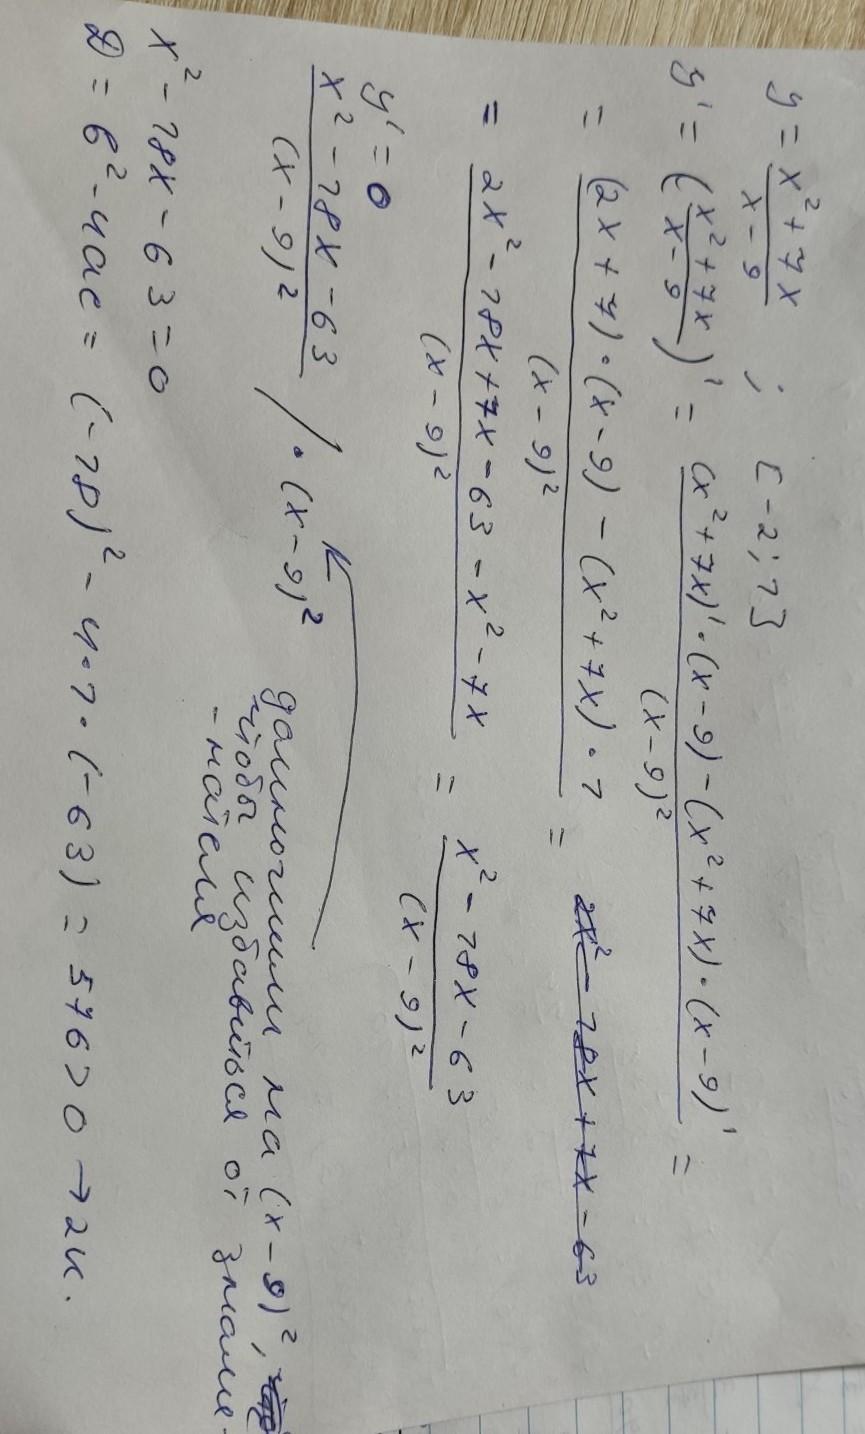 y = (x² + 7x)/(x - 9) ; [-2; 1]
y' = ((x² + 7x)/(x - 9))' = ((x² + 7x)' · (x - 9) - (x² + 7x) · (x - 9)')/(x - 9)² =
= ((2x + 7) · (x - 9) - (x² + 7x) · 1)/(x - 9)² = 2x² - 18x + 7x - 63
= (2x² - 18x + 7x - 63 - x² - 7x)/(x - 9)² = (x² - 18x - 63)/(x - 9)²
y' = 0
(x² - 18x - 63)/(x - 9)² / · (x - 9)²
домножили на (x - 9)²,
чтобы избавиться от знаме-
-нателя
x² - 18x - 63 = 0
D = b² - 4ac = (-18)² - 4 · 1 · (-63) = 576 > 0 → 2к.